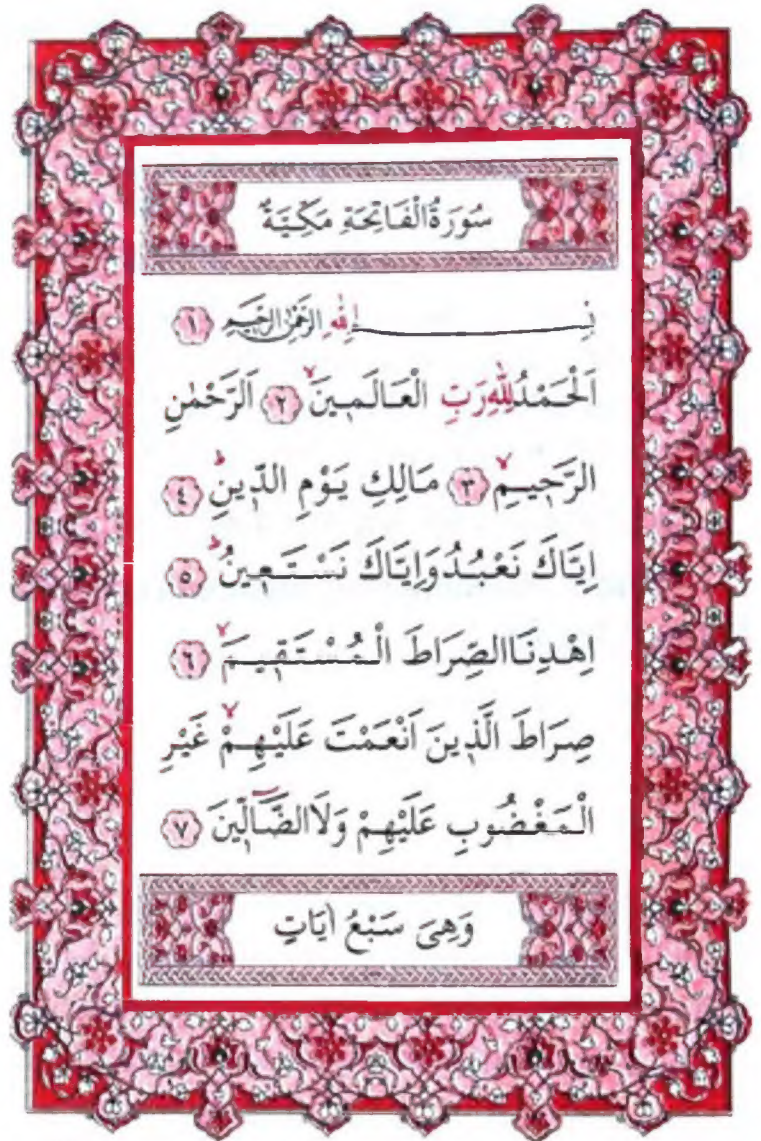 سُورَةُ الْفَاتِحَةِ مَكِّيَّةٌ
بِسْمِ اللهِ الرَّحْمٰنِ الرَّحِيمِ ﴿١﴾
اَلْحَمْدُ لِلّٰهِ رَبِّ الْعَالَمِينَۙ ﴿٢﴾ اَلرَّحْمٰنِ
الرَّحِيمِۙ ﴿٣﴾ مَالِكِ يَوْمِ الدِّينِۜ ﴿٤﴾
اِيَّاكَ نَعْبُدُ وَاِيَّاكَ نَسْتَعِينُۜ ﴿٥﴾
اِهْدِنَا الصِّرَاطَ الْمُسْتَقِيمَۙ ﴿٦﴾
صِرَاطَ الَّذِينَ اَنْعَمْتَ عَلَيْهِمْۙ غَيْرِ
الْمَغْضُوبِ عَلَيْهِمْ وَلَا الضَّٓالِّينَ ﴿٧﴾
وَهِىَ سَبْعُ اٰيَاتٍ